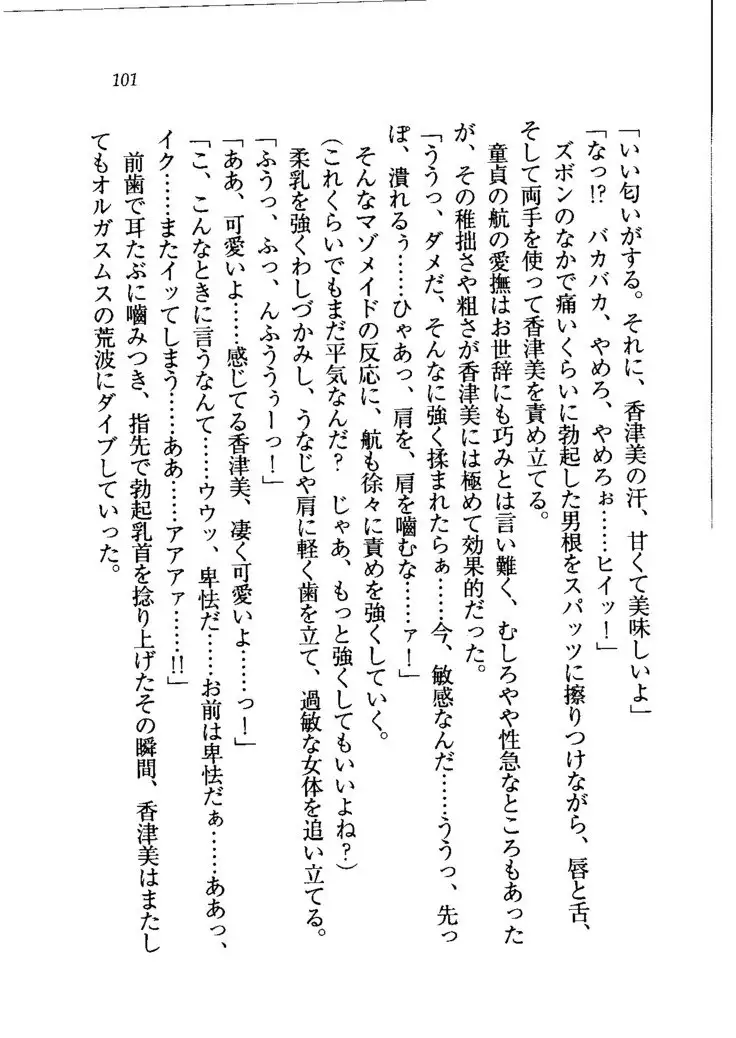 101
「いい匂いがする。それに、香津美の汗、甘くて美味しいよ」
「なっ!?　バカバカ、やめろ、やめろぉ……ヒイッ！」
ズボンのなかで痛いくらいに勃起した男根をスパッツに擦りつけながら、唇と舌、
そして両手を使って香津美を責め立てる。
童貞の航の愛撫はお世辞にも巧みとは言い難く、むしろやや性急なところもあった
が、その稚拙さや粗さが香津美には極めて効果的だった。
「ううっ、ダメだ、そんなに強く揉まれたらぁ……今、敏感なんだ……ううっ、先っ
ぽ、潰れるぅ……ひゃあっ、肩を、肩を嚙むな……ァ！」
そんなマゾメイドの反応に、航も徐々に責めを強くしていく。
(これくらいでもまだ平気なんだ？　じゃあ、もっと強くしてもいいよね？)
柔乳を強くわしづかみし、うなじや肩に軽く歯を立て、過敏な女体を追い立てる。
「ふうっ、ふっ、んふううぅーっ！」
「ああ、可愛いよ……感じてる香津美、凄く可愛いよ……っ！」
「こ、こんなときに言うなんて……ウウッ、卑怯だ……お前は卑怯だぁ……ああっ、
イク……またイッてしまう……ああ……アアアァ……!!」
前歯で耳たぶに嚙みつき、指先で勃起乳首を捻り上げたその瞬間、香津美はまたし
てもオルガスムスの荒波にダイブしていった。